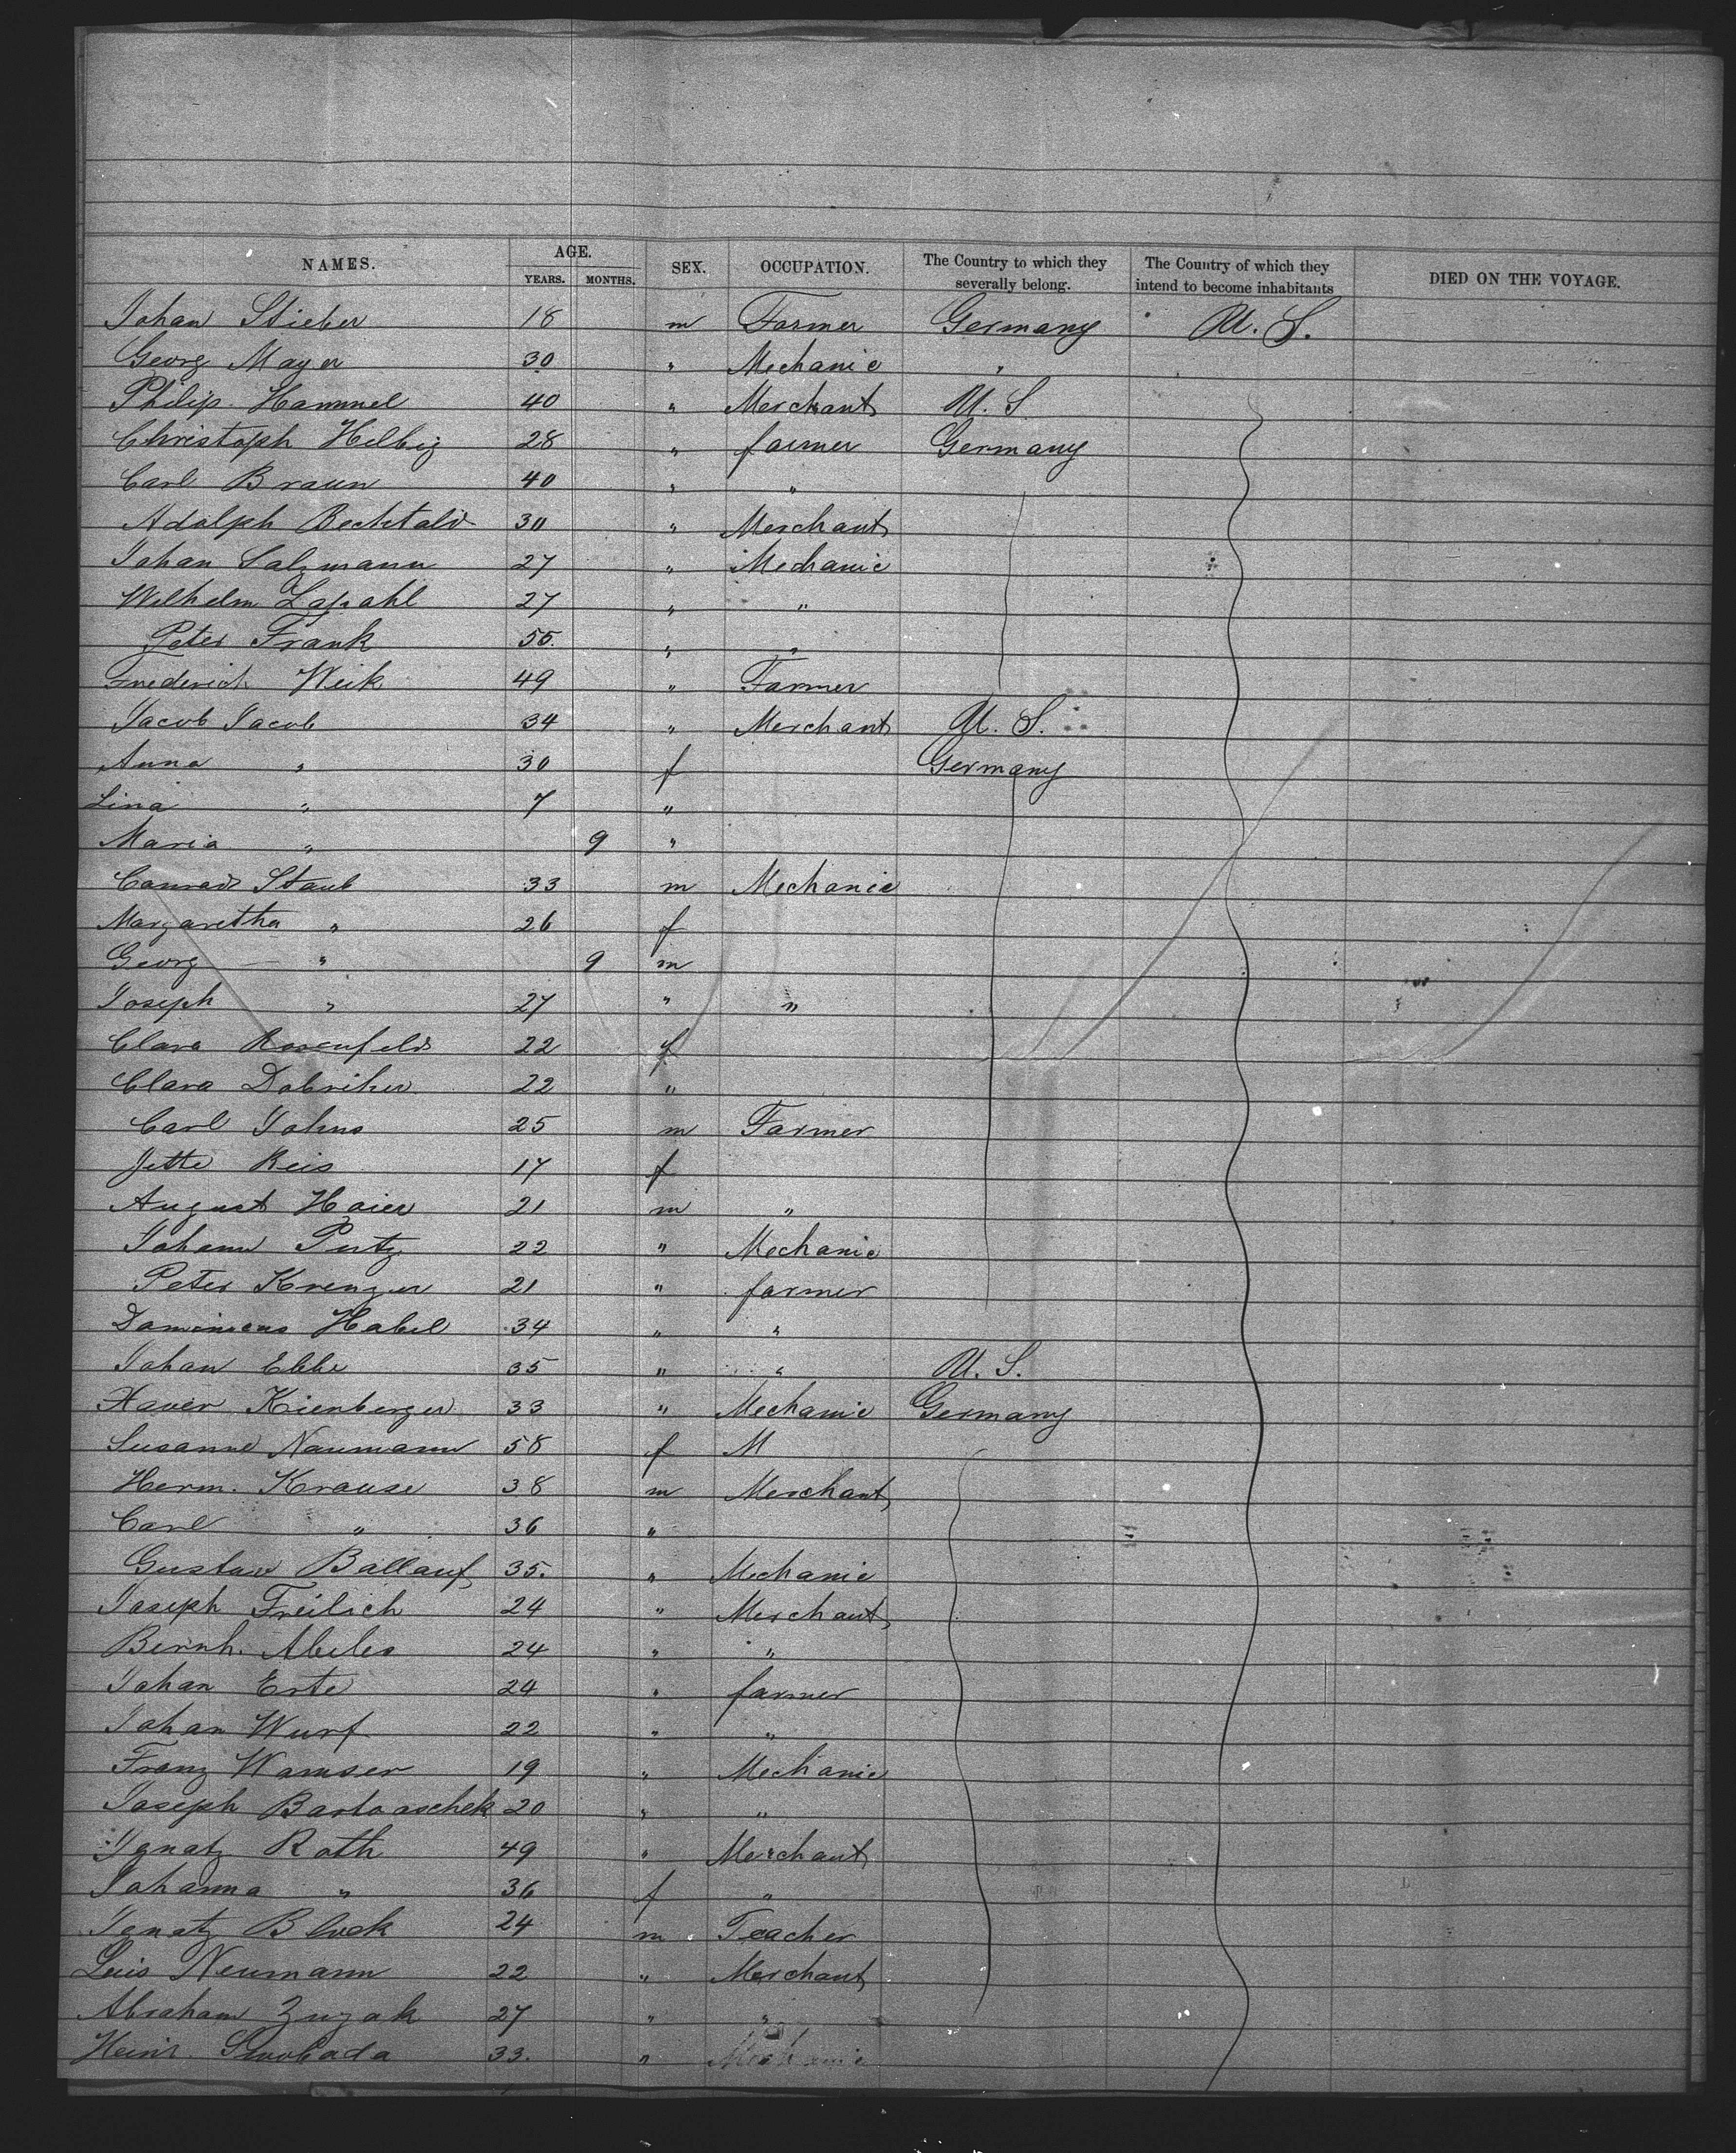 NAMES. AGE. SEX. OCCUPATION. The Country to which they severally belong. The Country of which they intend to become inhabitants DIED ON THE VOYAGE.
YEARS. MONTHS.
Johan Stieber 18 m Farmer Germany U. S.
Georg Mayer 30 " Mechanic "
Philip Hammel 40 " Merchant U. S.
Christoph Helbig 28 " farmer Germany
Carl Braun 40 " "
Adolph Bechtold 30 " Merchant
Johan Salzmann 27 " Mechanic
Wilhelm 27 " "
Peter Frank 55. " "
Friederich Weik 49 " Farmer
Jacob Jacob 34 " Merchant U. S.
Anna " 30 f Germany
Lina " 7 "
Maria " 9 "
Conrad Staub 33 m Mechanic
Margaretha " 26 f
Georg " 9 m
Joseph " 27 " "
Clara Rosenfeld 22 f
Clara 22 "
Carl Johns 25 m Farmer
Jette Reis 17 f
August Haier 21 m "
Johann Putz 22 " Mechanic
Peter Krenzer 21 " farmer
Dominicus Habel 34 " "
Johan Ebbe 35 " " U. S.
Xaver Kienberger 33 " Mechanic Germany
Susanne Naumann 58 f M
Herm. Krause 38 m Merchant
Carl " 36 "
Gustav Ballauf 35. " Mechanic
Joseph Freilich 24 " Merchant
Bernh. Abeles 24 " "
Johan Erte 24 " farmer
Johan Wurf 22 " "
Franz Wamser 19 " Mechanic
Joseph Bartoaschek 20 " "
Ignatz Roth 49 " Merchant
Johanna " 36 f "
Ignatz Block 24 m Teacher
Luis Neumann 22 " Merchant
Abraham Zuzak 27 " "
Heinr. Swobada 33. " Mechanic